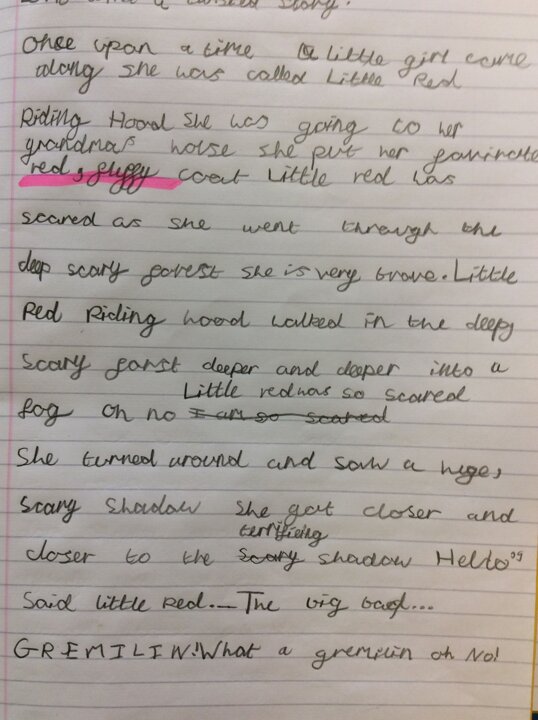 a twisted story.
Once upon a time a little girl came
along she was called Little Red
Riding Hood she was going to her
grandmas house she put her faviroute
red, fluffy coat Little red was
scared as she went through the
deep scary forest she is very brave. Little
Red Riding hood walked in the deep,
scary forist deeper and deeper into a
Little red was so scared
fog Oh no I am so scared
She turned around and saw a huge,
scary shadow she got closer and
terrifieing
closer to the scary shadow Hello"
Said little Red.... The big bad...
GREMILIN! What a gremilin oh No!